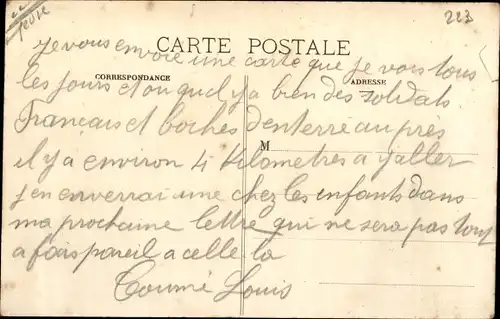 223
CARTE POSTALE
CORRESPONDANCE
ADRESSE
M
je vous envoie une carte que je vois tous
les jours et ou quil ya bien des soldats
Français et boches denterré au près
il y a environ 4 kilometres a y aller
jen enverrai une chez les enfants dans
ma prochaine lettre qui ne sera pas tout
a fais pareil a celle la
Louis